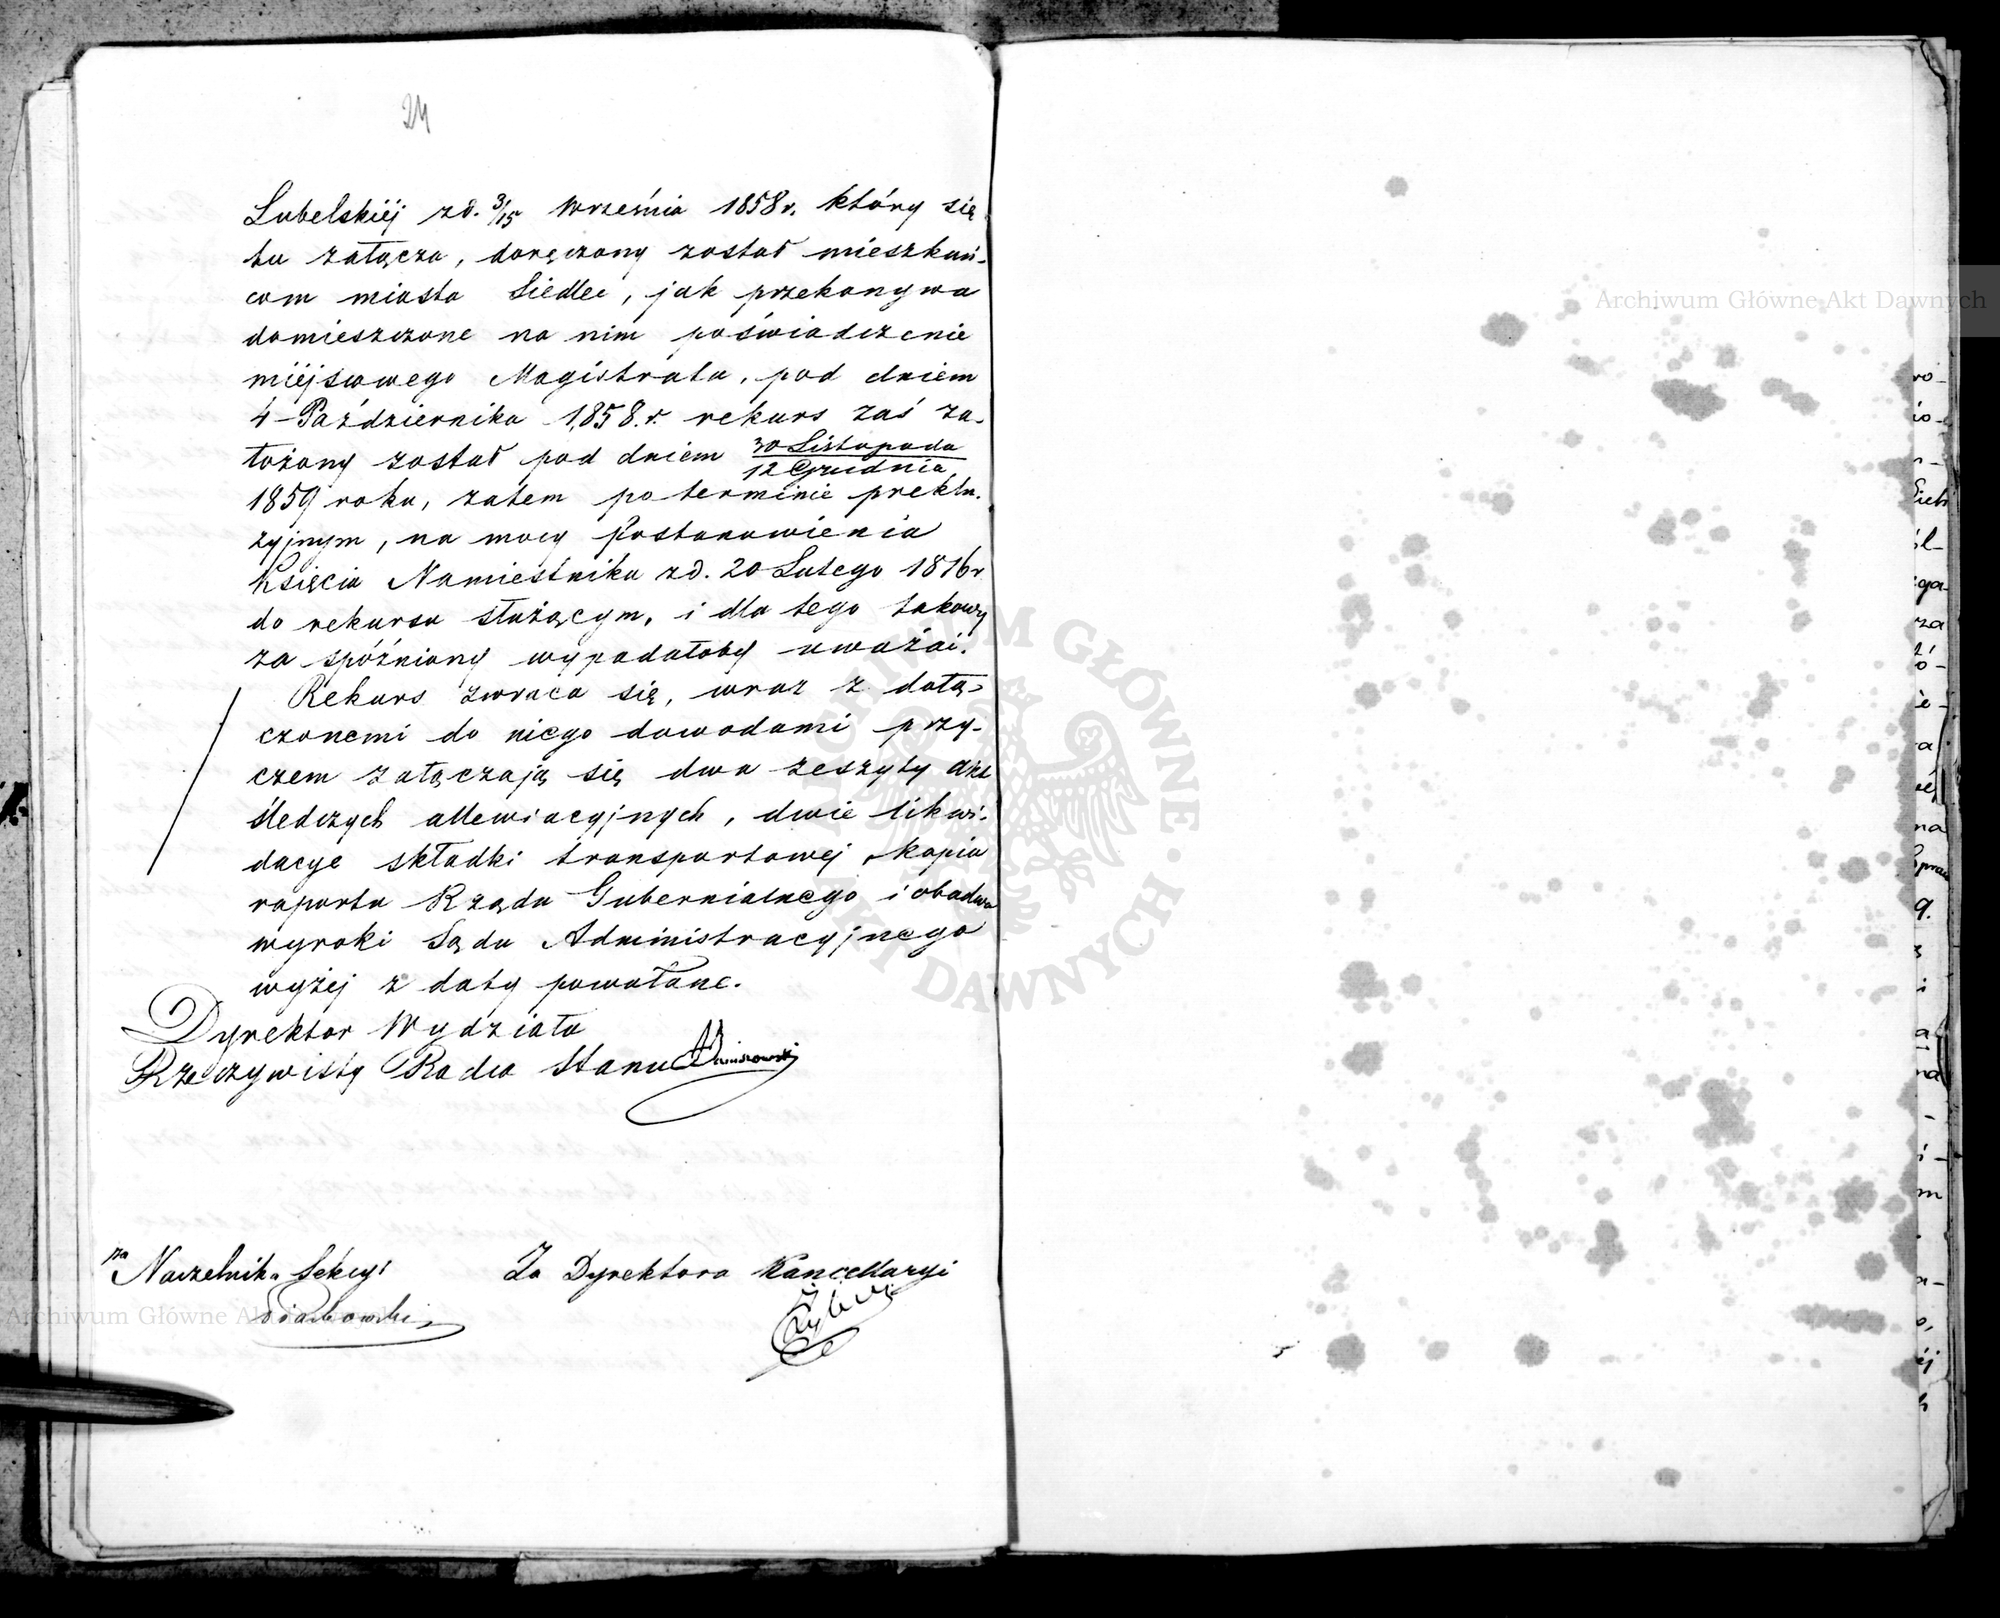 24
Lubelskiéj z d. 3/15 Września 1858 r. który się
tu załącza, doręczony został mieszkań-
com miasta Siedlec, jak przekonywa
domieszczone na nim poświadczenie
miéjscowego Magistratu, pod dniem
4 Października 1858. r. rekurs zaś za-
łożony został pod dniem 30 Listopada / 12 Grudnia
1859 roku, zatem po terminie preklu-
zyjnym, na mocy Postanowienia
Księcia Namiestnika z d. 20 Lutego 1816 r
do rekursu służącym, i dla tego takowy
za spóźniony wypadałoby uważać.
Rekurs zwraca się, wraz z dołą-
czonemi do niego dowodami przy-
czem załączają się dwa zeszyty akt
śledczych allewiacyjnych, dwie likwi-
dacye składki transportowej, kopia
raportu Rządu Gubernialnego i obadwa
wyroki Sądu Administracyjnego
wyżej z daty powołane.
Dyrektor Wydziału
Rzeczywisty Radca Stanu
za Naczelnika Sekcyi
Za Dyrektora Kancellaryi
Archiwum Główne Akt Dawnych
Archiwum Główne Akt Dawnych
ARCHIWUM GŁÓWNE AKT DAWNYCH